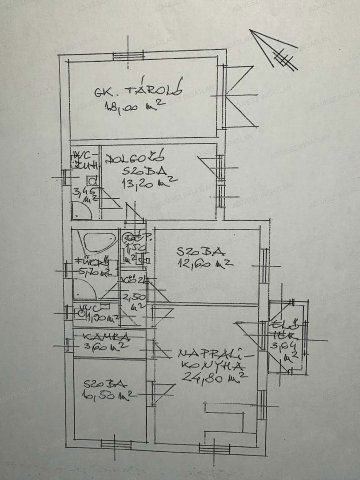 GK. TÁROLÓ
18,00 m²
WC-
ZUH.
3,45
m²
DOLGOZÓ
SZOBA
13,20 m²
1,50
m²
SZOBA
12,60 m²
FÜRDŐ
5,70 m²
KÖZL.
2,50
m²
WC
1,20 m²
KAMRA
3,60 m²
NAPPALI-
KONYHA
24,80 m²
ELŐ
TÉR
3,64
m²
SZOBA
10,50 m²